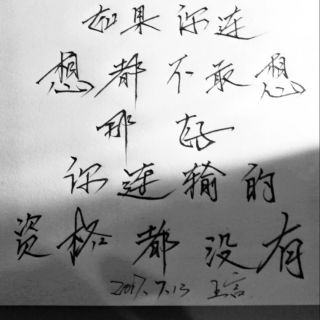 如果你连
想都不敢想
那好
你连输的
资格都没有
2017.7.13 王言